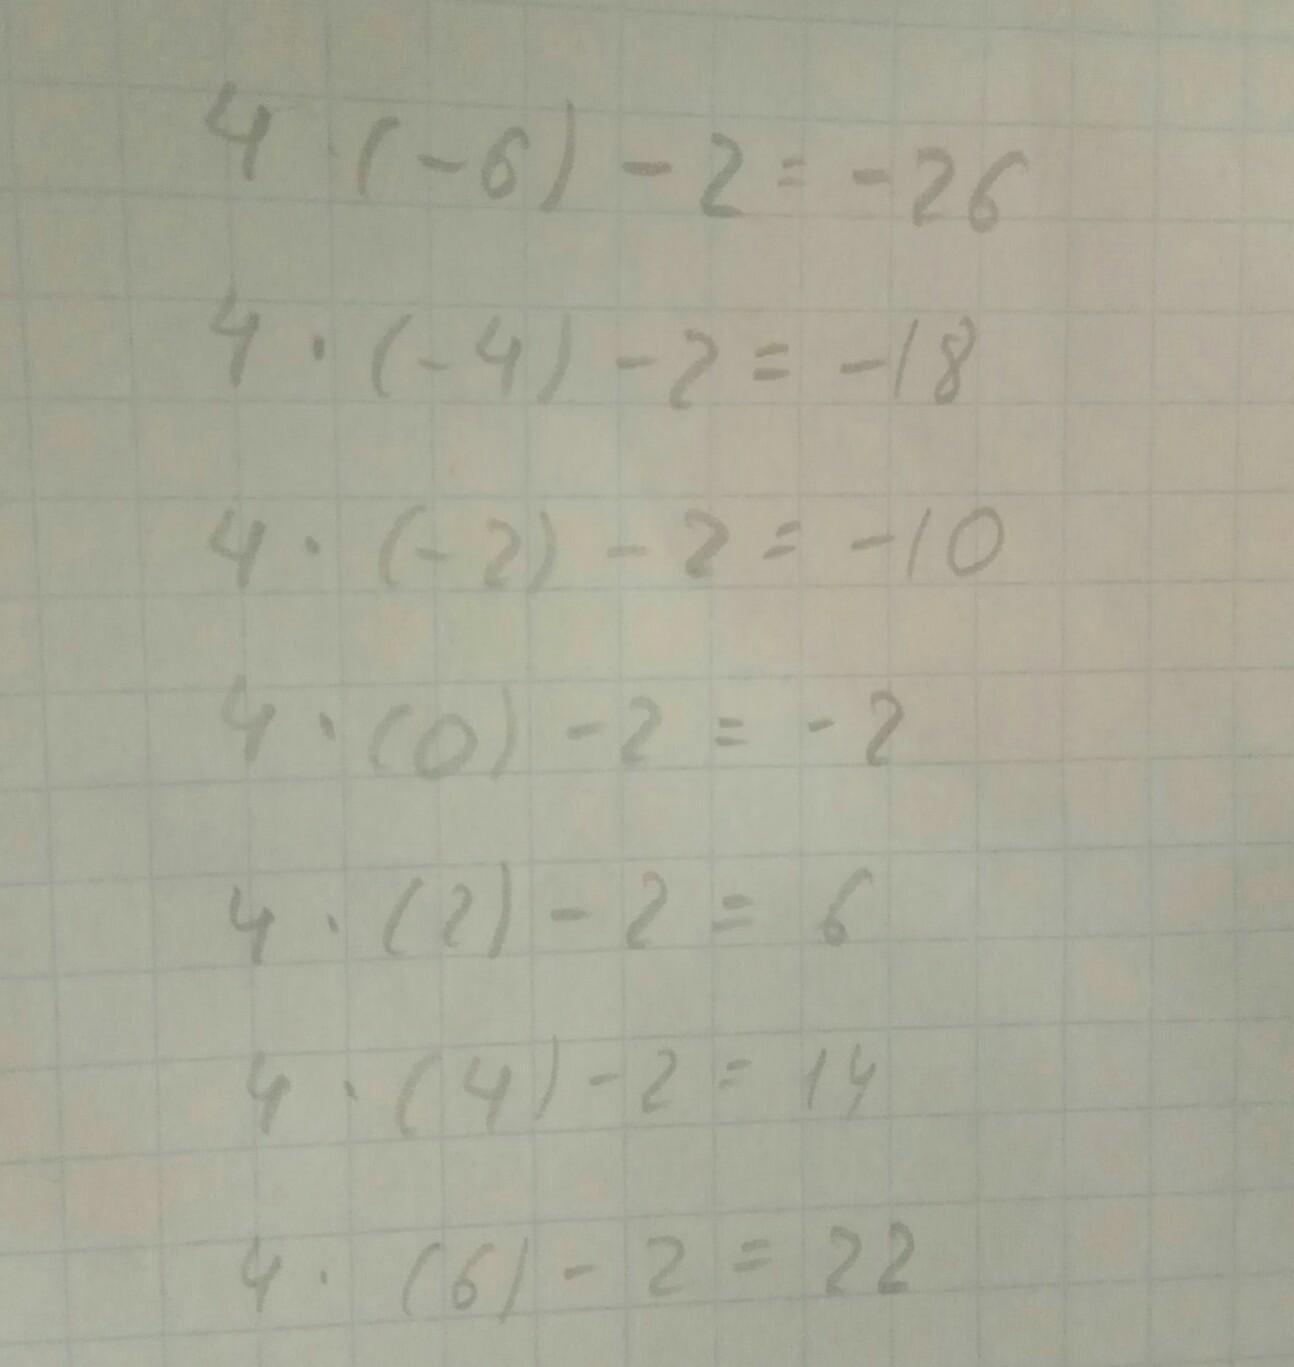 4 · (-6) - 2 = -26
4 · (-4) - 2 = -18
4 · (-2) - 2 = -10
4 · (0) - 2 = -2
4 · (2) - 2 = 6
4 · (4) - 2 = 14
4 · (6) - 2 = 22